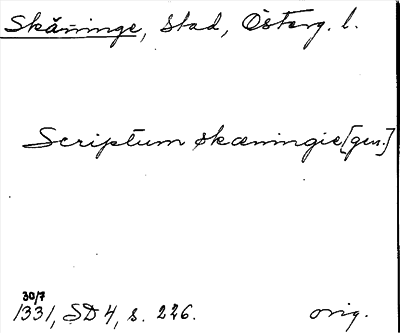 Skänninge, stad, Österg. l.
Scriptum skæningie [gen.]
30/7
1331, SD 4, s. 226. orig.